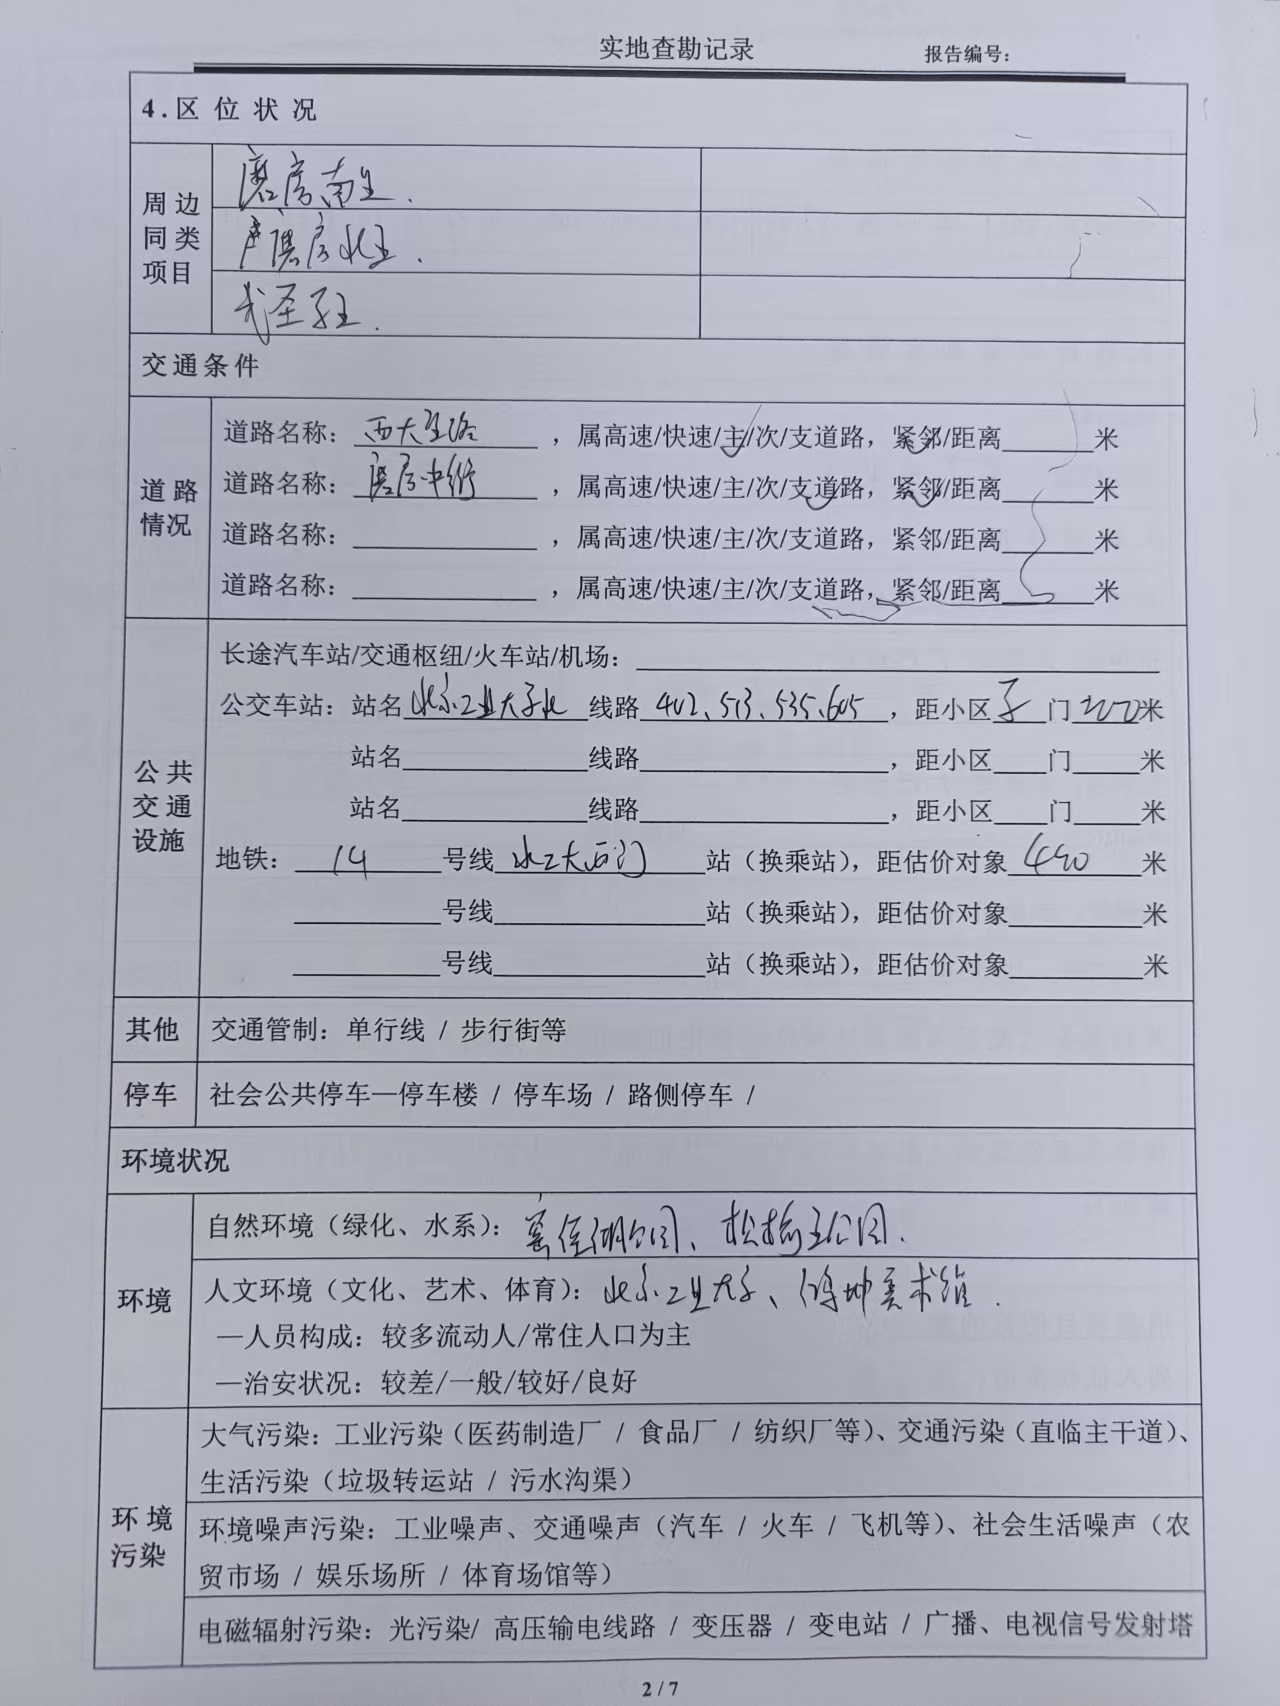 实地查勘记录
报告编号：
4.区位状况
周边同类项目
磨房南里.
磨房北里.
武圣东里.
交通条件
道路情况
道路名称：西大望路，属高速/快速/主/次/支道路，紧邻/距离______米
道路名称：磨房中街，属高速/快速/主/次/支道路，紧邻/距离______米
道路名称：____________，属高速/快速/主/次/支道路，紧邻/距离______米
道路名称：____________，属高速/快速/主/次/支道路，紧邻/距离______米
公共交通设施
长途汽车站/交通枢纽/火车站/机场：____________
公交车站：站名北京工业大学北 线路402、513、535、605，距小区东门200米
站名____________线路____________，距小区____门____米
站名____________线路____________，距小区____门____米
地铁：14号线北工大西门站（换乘站），距估价对象490米
______号线____________站（换乘站），距估价对象______米
______号线____________站（换乘站），距估价对象______米
其他 交通管制：单行线 / 步行街等
停车 社会公共停车—停车楼 / 停车场 / 路侧停车 /
环境状况
环境
自然环境（绿化、水系）：窑洼湖公园、松榆里公园.
人文环境（文化、艺术、体育）：北京工业大学、美术馆.
—人员构成：较多流动人/常住人口为主
—治安状况：较差/一般/较好/良好
环境污染
大气污染：工业污染（医药制造厂 / 食品厂 / 纺织厂等）、交通污染（直临主干道）、
生活污染（垃圾转运站 / 污水沟渠）
环境噪声污染：工业噪声、交通噪声（汽车 / 火车 / 飞机等）、社会生活噪声（农
贸市场 / 娱乐场所 / 体育场馆等）
电磁辐射污染：光污染/ 高压输电线路 / 变压器 / 变电站 / 广播、电视信号发射塔
2 / 7